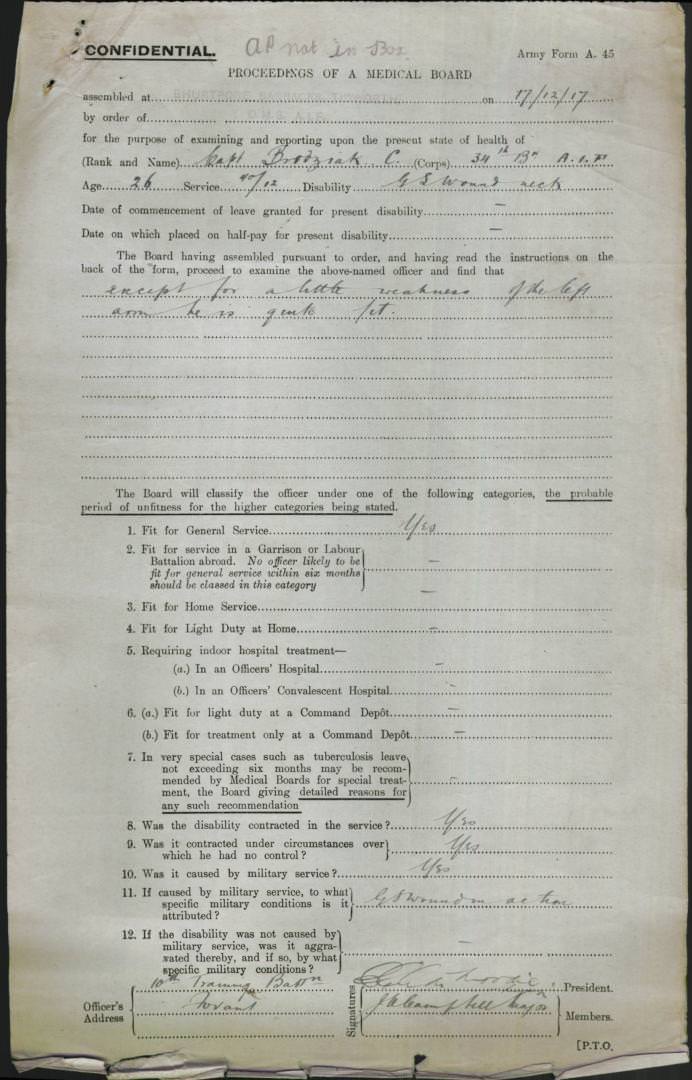 CONFIDENTIAL.
AP not in Box
Army Form A. 45
PROCEEDINGS OF A MEDICAL BOARD
assembled at on 17/12/17
by order of D.M.S. A.I.F.
for the purpose of examining and reporting upon the present state of health of
(Rank and Name) Capt Brodziak C. (Corps) 34th Bn A.I.F.
Age 26 Service /12 Disability G S Wound neck
Date of commencement of leave granted for present disability —
Date on which placed on half-pay for present disability —
The Board having assembled pursuant to order, and having read the instructions on the
back of the form, proceed to examine the above-named officer and find that
except for a little weakness of the left
arm he is quite fit.
The Board will classify the officer under one of the following categories, the probable
period of unfitness for the higher categories being stated.
1. Fit for General Service Yes
2. Fit for service in a Garrison or Labour
Battalion abroad. No officer likely to be
fit for general service within six months
should be classed in this category —
3. Fit for Home Service —
4. Fit for Light Duty at Home —
5. Requiring indoor hospital treatment—
(a.) In an Officers' Hospital —
(b.) In an Officers' Convalescent Hospital —
6. (a.) Fit for light duty at a Command Depôt —
(b.) Fit for treatment only at a Command Depôt —
7. In very special cases such as tuberculosis leave
not exceeding six months may be recom-
mended by Medical Boards for special treat-
ment, the Board giving detailed reasons for
any such recommendation —
8. Was the disability contracted in the service? Yes
9. Was it contracted under circumstances over
which he had no control? Yes
10. Was it caused by military service? Yes
11. If caused by military service, to what
specific military conditions is it
attributed? G S Wound in action
12. If the disability was not caused by
military service, was it aggra-
vated thereby, and if so, by what
specific military conditions? —
Officer's
Address
10th Training Battn
Fovant
Signatures
President.
J A Campbell Major
Members.
[P.T.O.